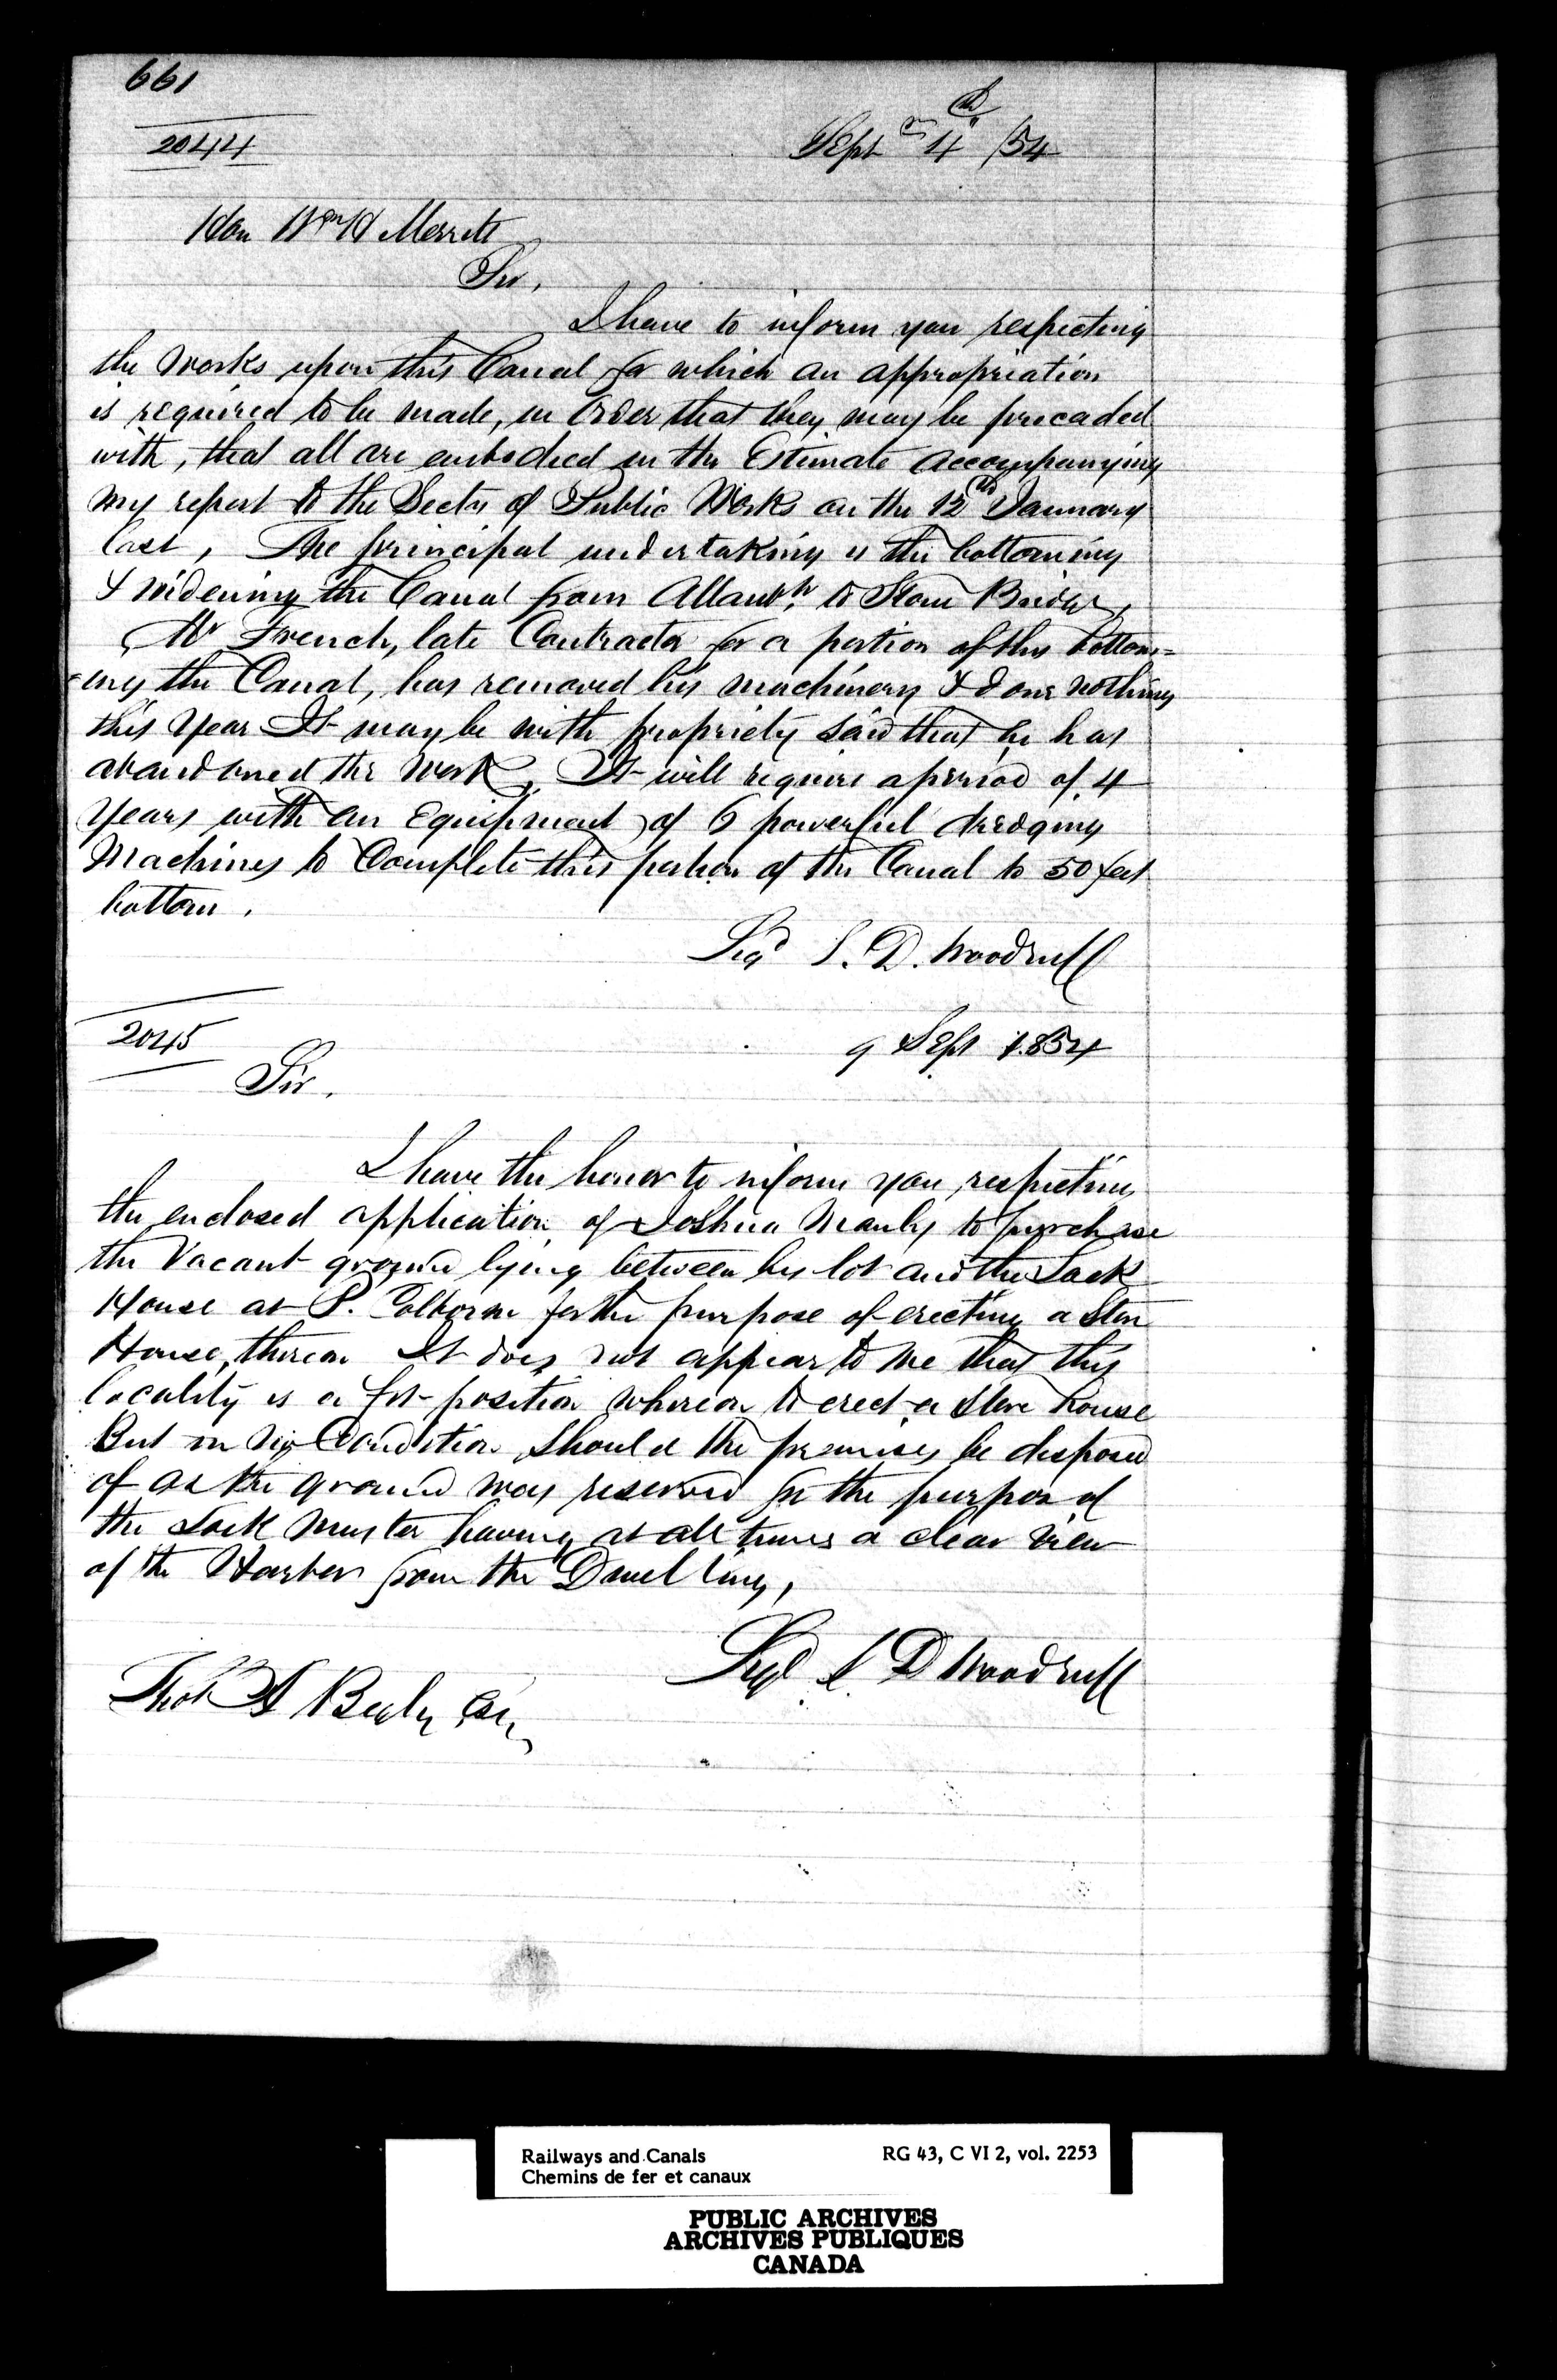 661
2044
Septr 4th /54
Hon Wm H Merritt
Sir,
I have to inform you respecting
the works upon this Canal for which an appropriation
is required to be made, in order that they may be proceeded
with, that all are embodied in the Estimate accompanying
my report to the Secty of Public Works on the 12th January
last, The principal undertaking is the bottoming
& widening the Canal from Allanbh. to Stone Bridge,
Mr French, late Contractor for a portion of this bottom=
=ing the Canal, has removed his machinery & done nothing
this Year It may be with propriety said that he has
abandoned the work, It will require a period of 4
Years with an Equipment of 6 powerful dredging
Machines to Complete this portion of the Canal to 50 feet
bottom.
Sigd S. D. Woodruff
2045
9 Sept 1854
Sir,
I have the honor to inform you, respecting
the enclosed application of Joshua Manly to purchase
the Vacant ground lying between his lot and the Lock
House at P. Colborne for the purpose of erecting a Store
House, thereon It does not appear to me that this
locality is a fit position whereon to erect a Store house
But on no Condition should the premises be disposed
of as the ground was reserved for the purpose of
the Lock Master having at all times a clear view
of the Harbor from the Dwelling,
Sigd S D Woodruff
Thos A Begly Esq,
Railways and Canals
Chemins de fer et canaux
RG 43, C VI 2, vol. 2253
PUBLIC ARCHIVES
ARCHIVES PUBLIQUES
CANADA